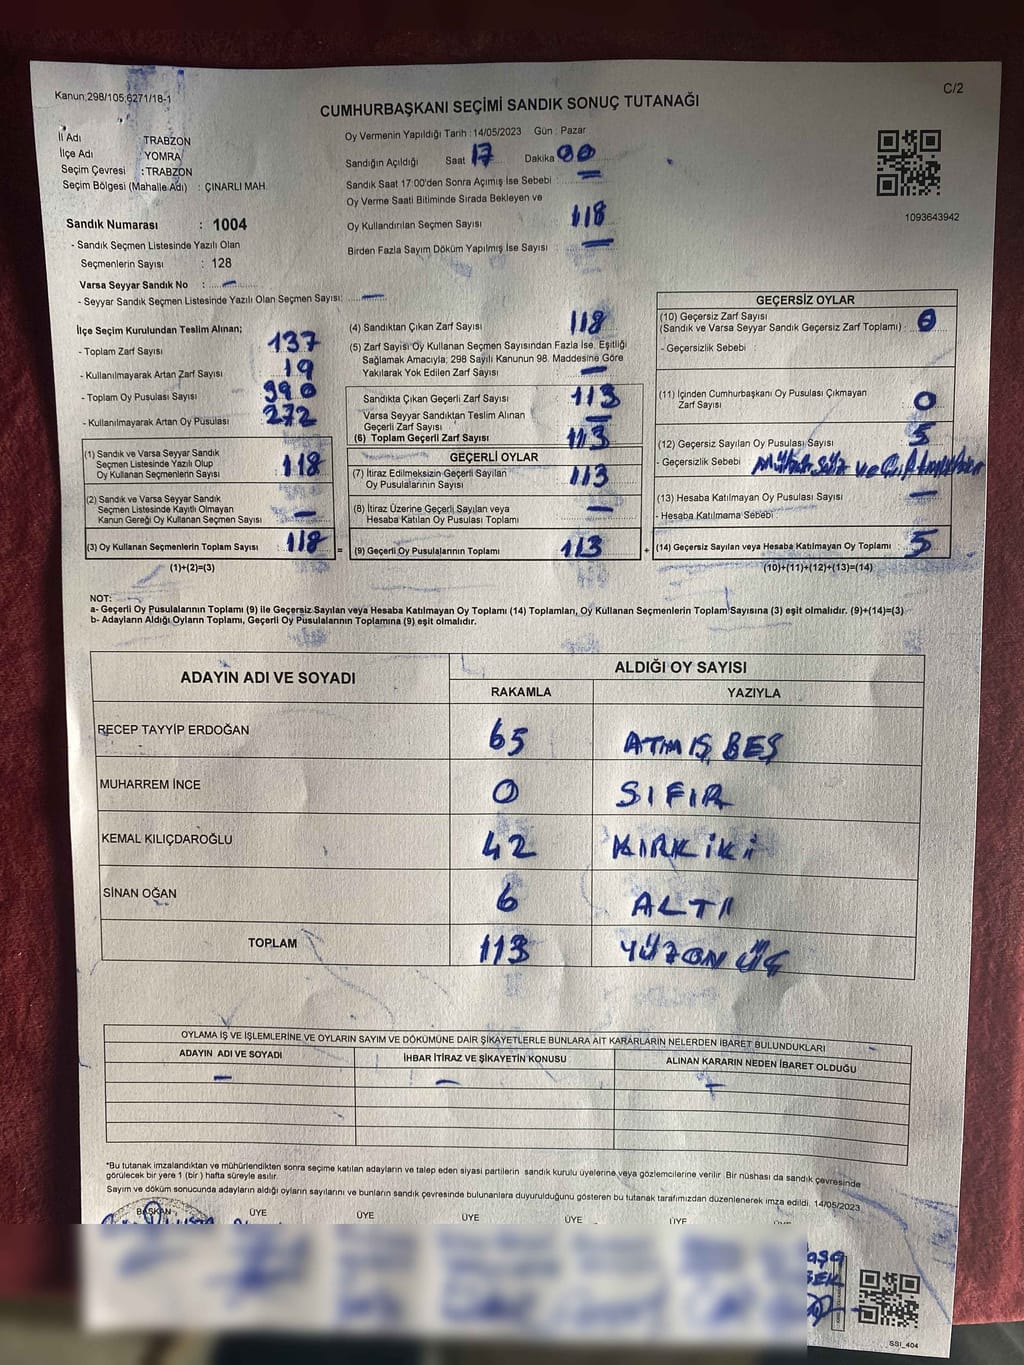 Kanun;298/105;6271/18-1
C/2
CUMHURBAŞKANI SEÇİMİ SANDIK SONUÇ TUTANAĞI
İl Adı : TRABZON
İlçe Adı : YOMRA
Seçim Çevresi : TRABZON
Seçim Bölgesi (Mahalle Adı) : ÇINARLI MAH.
Sandık Numarası : 1004
- Sandık Seçmen Listesinde Yazılı Olan
Seçmenlerin Sayısı : 128
Varsa Seyyar Sandık No : —
- Seyyar Sandık Seçmen Listesinde Yazılı Olan Seçmen Sayısı: —
Oy Vermenin Yapıldığı Tarih : 14/05/2023 Gün : Pazar
Sandığın Açıldığı Saat 17 Dakika 00
Sandık Saat 17:00'den Sonra Açımış İse Sebebi : —
Oy Verme Saati Bitiminde Sırada Bekleyen ve
Oy Kullandırılan Seçmen Sayısı : 118
Birden Fazla Sayım Döküm Yapılmış İse Sayısı : —
1093643942
İlçe Seçim Kurulundan Teslim Alınan;
- Toplam Zarf Sayısı : 137
- Kullanılmayarak Artan Zarf Sayısı : 19
- Toplam Oy Pusulası Sayısı : 390
- Kullanılmayarak Artan Oy Pusulası : 272
(1) Sandık ve Varsa Seyyar Sandık
Seçmen Listesinde Yazılı Olup
Oy Kullanan Seçmenlerin Sayısı : 118
(2) Sandık ve Varsa Seyyar Sandık
Seçmen Listesinde Kayıtlı Olmayan
Kanun Gereği Oy Kullanan Seçmen Sayısı : —
(3) Oy Kullanan Seçmenlerin Toplam Sayısı : 118
(1)+(2)=(3)
(4) Sandıktan Çıkan Zarf Sayısı : 118
(5) Zarf Sayısı Oy Kullanan Seçmen Sayısından Fazla İse, Eşitliği
Sağlamak Amacıyla; 298 Sayılı Kanunun 98. Maddesine Göre
Yakılarak Yok Edilen Zarf Sayısı : —
Sandıkta Çıkan Geçerli Zarf Sayısı : 113
Varsa Seyyar Sandıktan Teslim Alınan
Geçerli Zarf Sayısı : —
(6) Toplam Geçerli Zarf Sayısı : 113
GEÇERLİ OYLAR
(7) İtiraz Edilmeksizin Geçerli Sayılan
Oy Pusulalarının Sayısı : 113
(8) İtiraz Üzerine Geçerli Sayılan veya
Hesaba Katılan Oy Pusulası Toplamı : —
= (9) Geçerli Oy Pusulalarının Toplamı : 113
GEÇERSİZ OYLAR
(10) Geçersiz Zarf Sayısı
(Sandık ve Varsa Seyyar Sandık Geçersiz Zarf Toplamı) : 0
- Geçersizlik Sebebi :
(11) İçinden Cumhurbaşkanı Oy Pusulası Çıkmayan
Zarf Sayısı : 0
(12) Geçersiz Sayılan Oy Pusulası Sayısı : 5
- Geçersizlik Sebebi : ve
(13) Hesaba Katılmayan Oy Pusulası Sayısı : —
- Hesaba Katılmama Sebebi :
+ (14) Geçersiz Sayılan veya Hesaba Katılmayan Oy Toplamı : 5
(10)+(11)+(12)+(13)=(14)
NOT:
a- Geçerli Oy Pusulalarının Toplamı (9) ile Geçersiz Sayılan veya Hesaba Katılmayan Oy Toplamı (14) Toplamları, Oy Kullanan Seçmenlerin Toplam Sayısına (3) eşit olmalıdır. (9)+(14)=(3)
b- Adayların Aldığı Oyların Toplamı, Geçerli Oy Pusulalarının Toplamına (9) eşit olmalıdır.
ADAYIN ADI VE SOYADI ALDIĞI OY SAYISI
RAKAMLA YAZIYLA
RECEP TAYYİP ERDOĞAN 65 ATMIŞ BEŞ
MUHARREM İNCE 0 SIFIR
KEMAL KILIÇDAROĞLU 42 KIRK İKİ
SİNAN OĞAN 6 ALTI
TOPLAM 113 YÜZON ÜÇ
OYLAMA İŞ VE İŞLEMLERİNE VE OYLARIN SAYIM VE DÖKÜMÜNE DAİR ŞİKAYETLERLE BUNLARA AİT KARARLARIN NELERDEN İBARET BULUNDUKLARI
ADAYIN ADI VE SOYADI İHBAR İTİRAZ VE ŞİKAYETİN KONUSU ALINAN KARARIN NEDEN İBARET OLDUĞU
— — —
*Bu tutanak imzalandıktan ve mühürlendikten sonra seçime katılan adayların ve talep eden siyasi partilerin sandık kurulu üyelerine veya gözlemcilerine verilir. Bir nüshası da sandık çevresinde
görülecek bir yere 1 (bir ) hafta süreyle asılır.
Sayım ve döküm sonucunda adayların aldığı oyların sayılarını ve bunların sandık çevresinde bulunanlara duyurulduğunu gösteren bu tutanak tarafımızdan düzenlenerek imza edildi. 14/05/2023
BAŞKAN ÜYE ÜYE ÜYE ÜYE ÜYE ÜYE
SSI_404